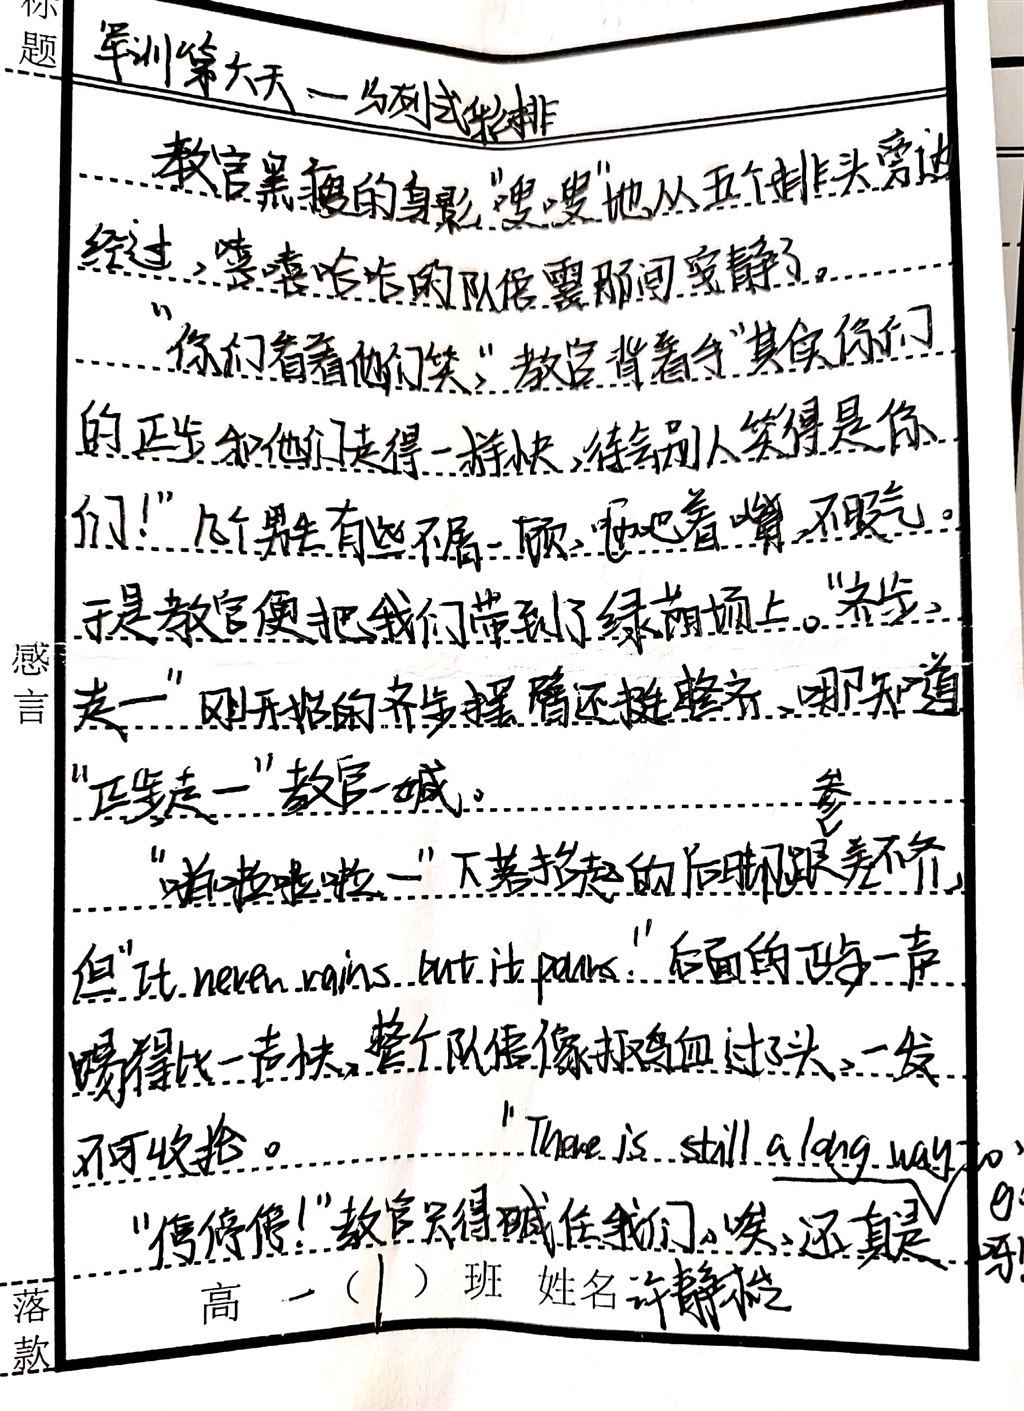 标题
军训第六天一与列式彩排
教官黑瘦的身影"嗖嗖"地从五个排头旁边
经过、嘻嘻哈哈的队伍霎那间变静了。
"你们看着他们笑,"教官背着手"其实你们
的正步和他们走得一样快,待会别人笑得是你
们!"几个男生有些不屑一顾、着嘴,不服气。
于是教官便把我们带到了绿荫场上。"齐步、
走一"刚开始的齐步摆臂还挺整齐、哪知道
"正步走一"教官一喊。
"啪啦啦啦一"下落抬起的后脚跟参差不齐,
但"It never rains but it pours."后面的正步一声
喊得比一声快,整个队伍像打鸡血过了头、一发
不可收拾。
"停停停!"教官只得喊住我们。唉、还真是
"There is still a long way to go
呀!
感言
落款
高一(1)班 姓名 许静